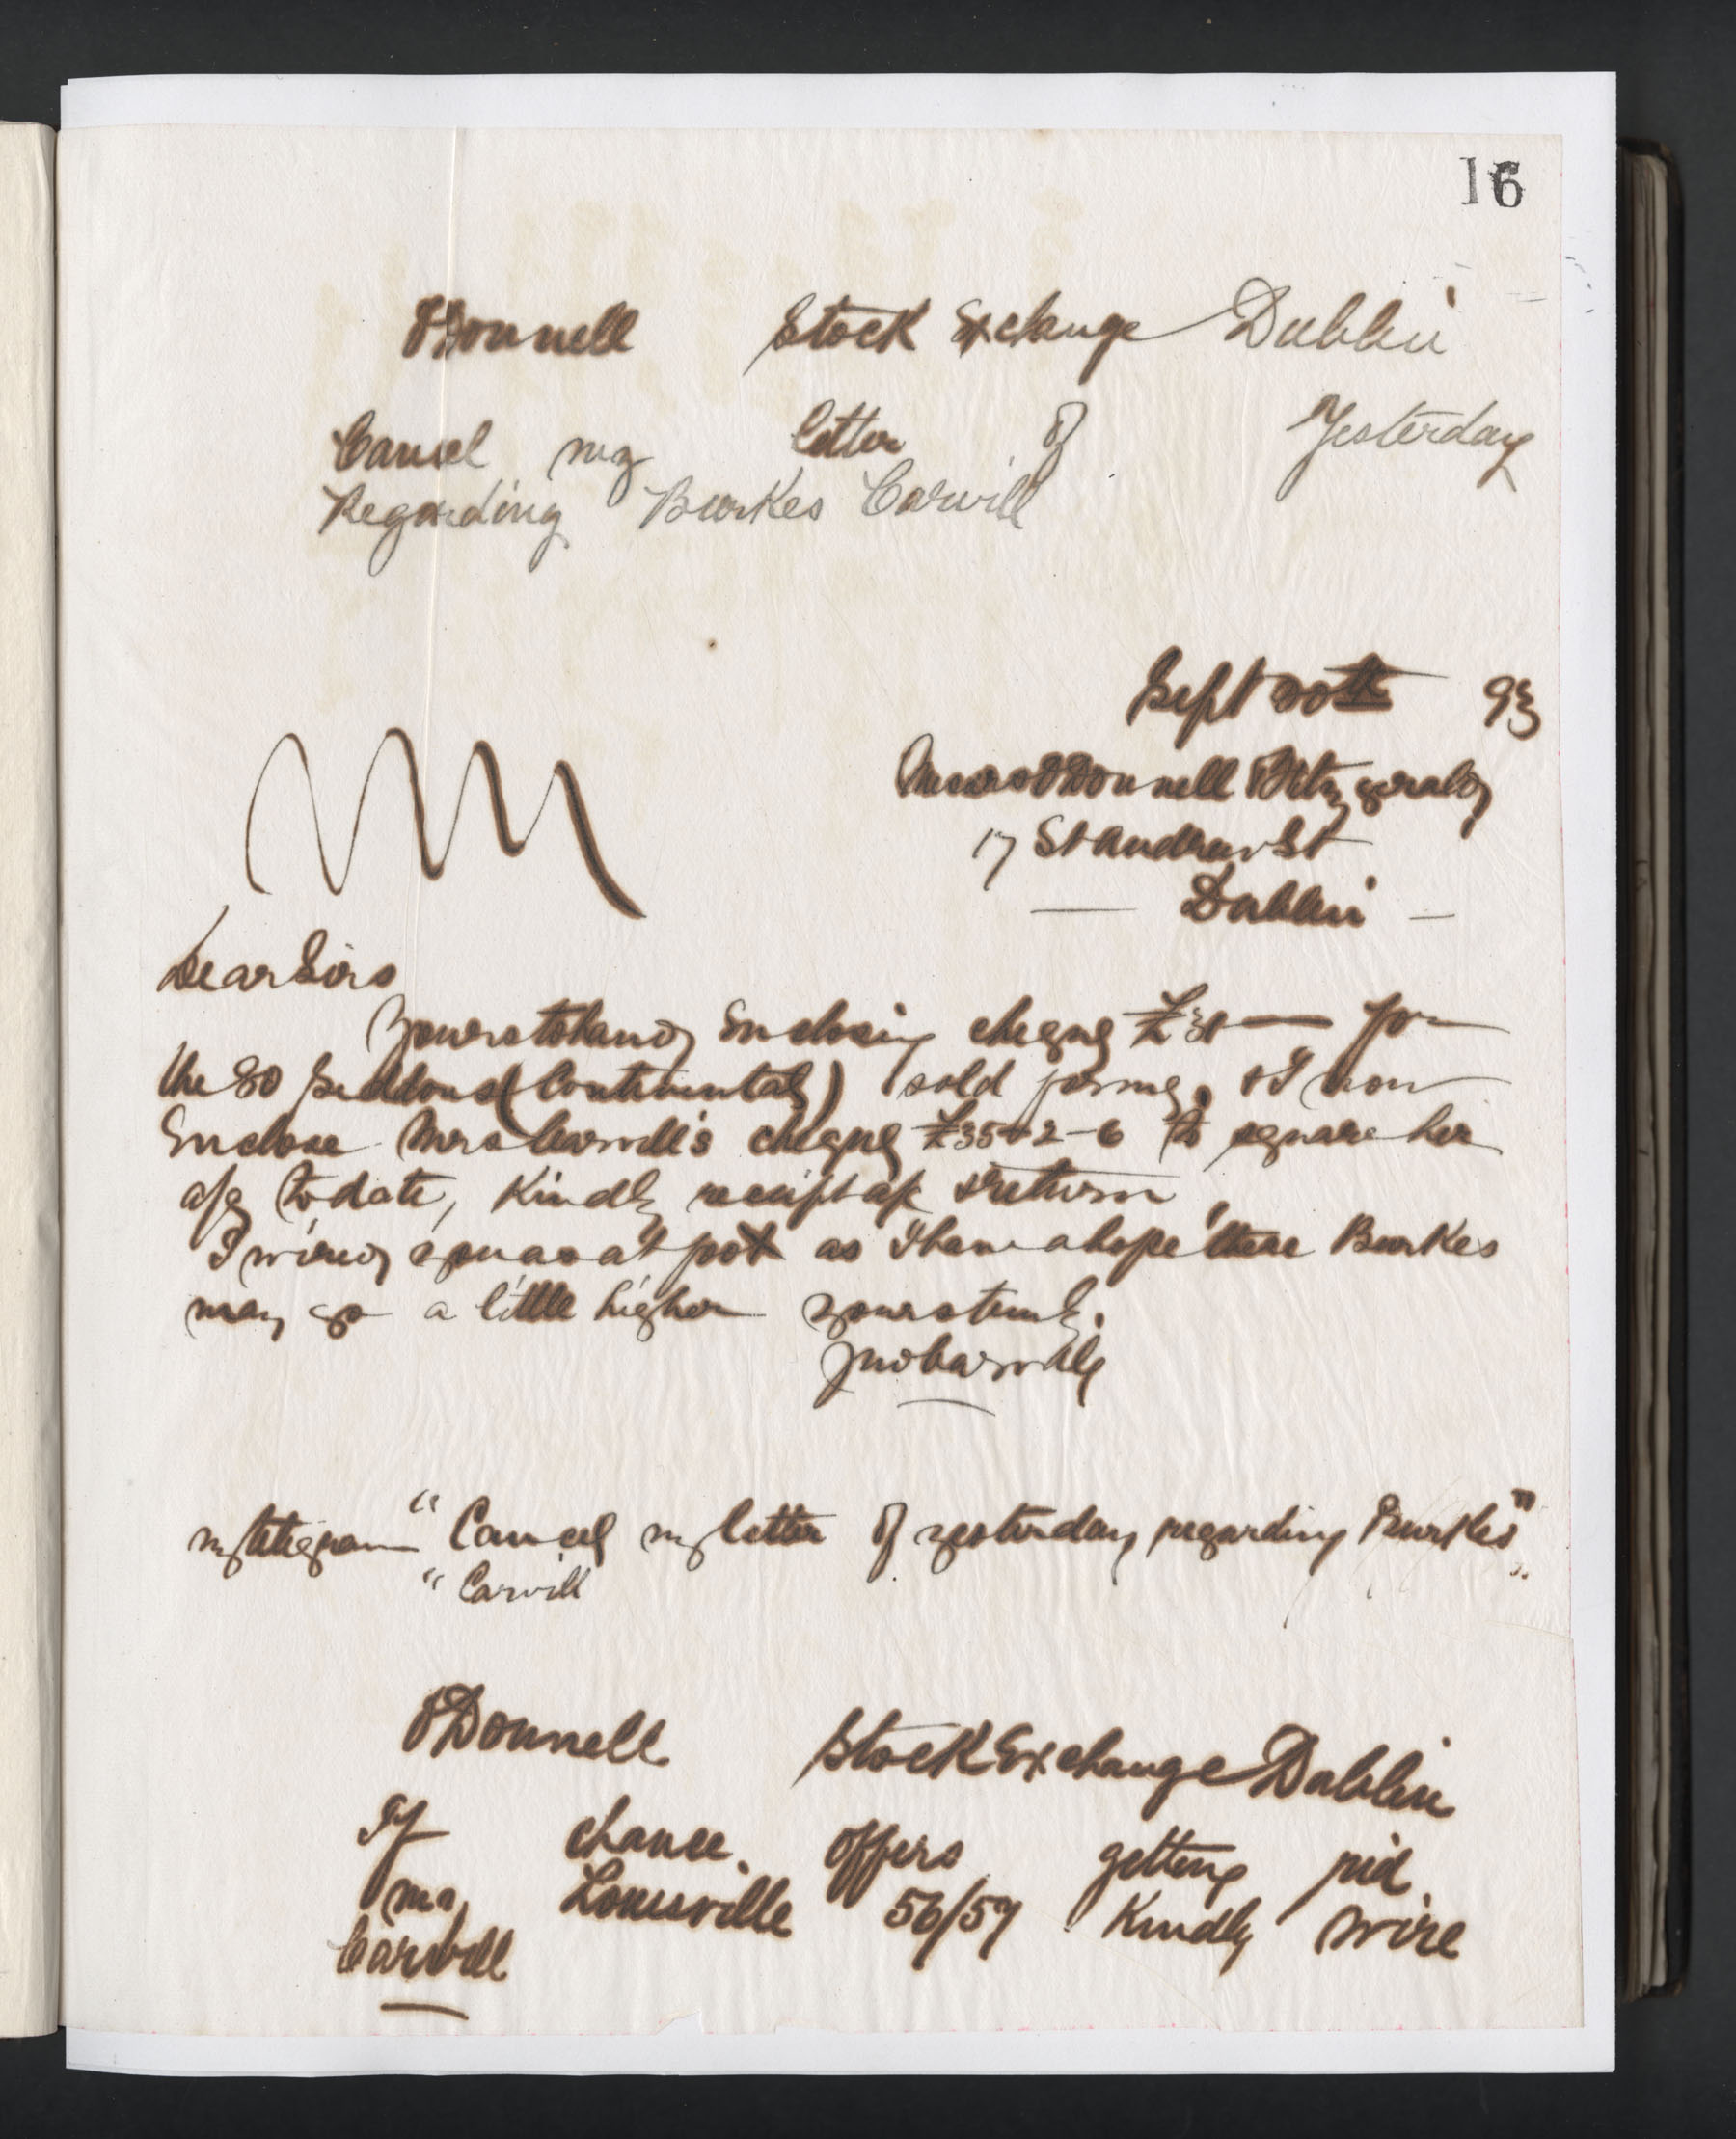 16
O'Donnell Stock Exchange Dublin
Cancel my letter of Yesterday
Regarding Burkes Carvill
Sept 20th 93
Messrs O'Donnell & Fitzgerald
17 St Andrew St
Dublin
Dear Sirs
Yours to hand Enclosing cheque for
the 80 Seddons (Continental) sold for me, & I now
Enclose Mrs Carvill's cheque £35-2-6 to square her
a/c to date, Kindly receipt a/c & return
I wired you as at foot as I have a hope these Burkes
may go a little higher yours truly
Jno Carvill
my telegram "Cancel my letter of yesterday regarding Burkes"
"Carvill
O'Donnell Stock Exchange Dublin
If chance offers getting rid
my Louisville 56/57 Kindly wire
Carvill